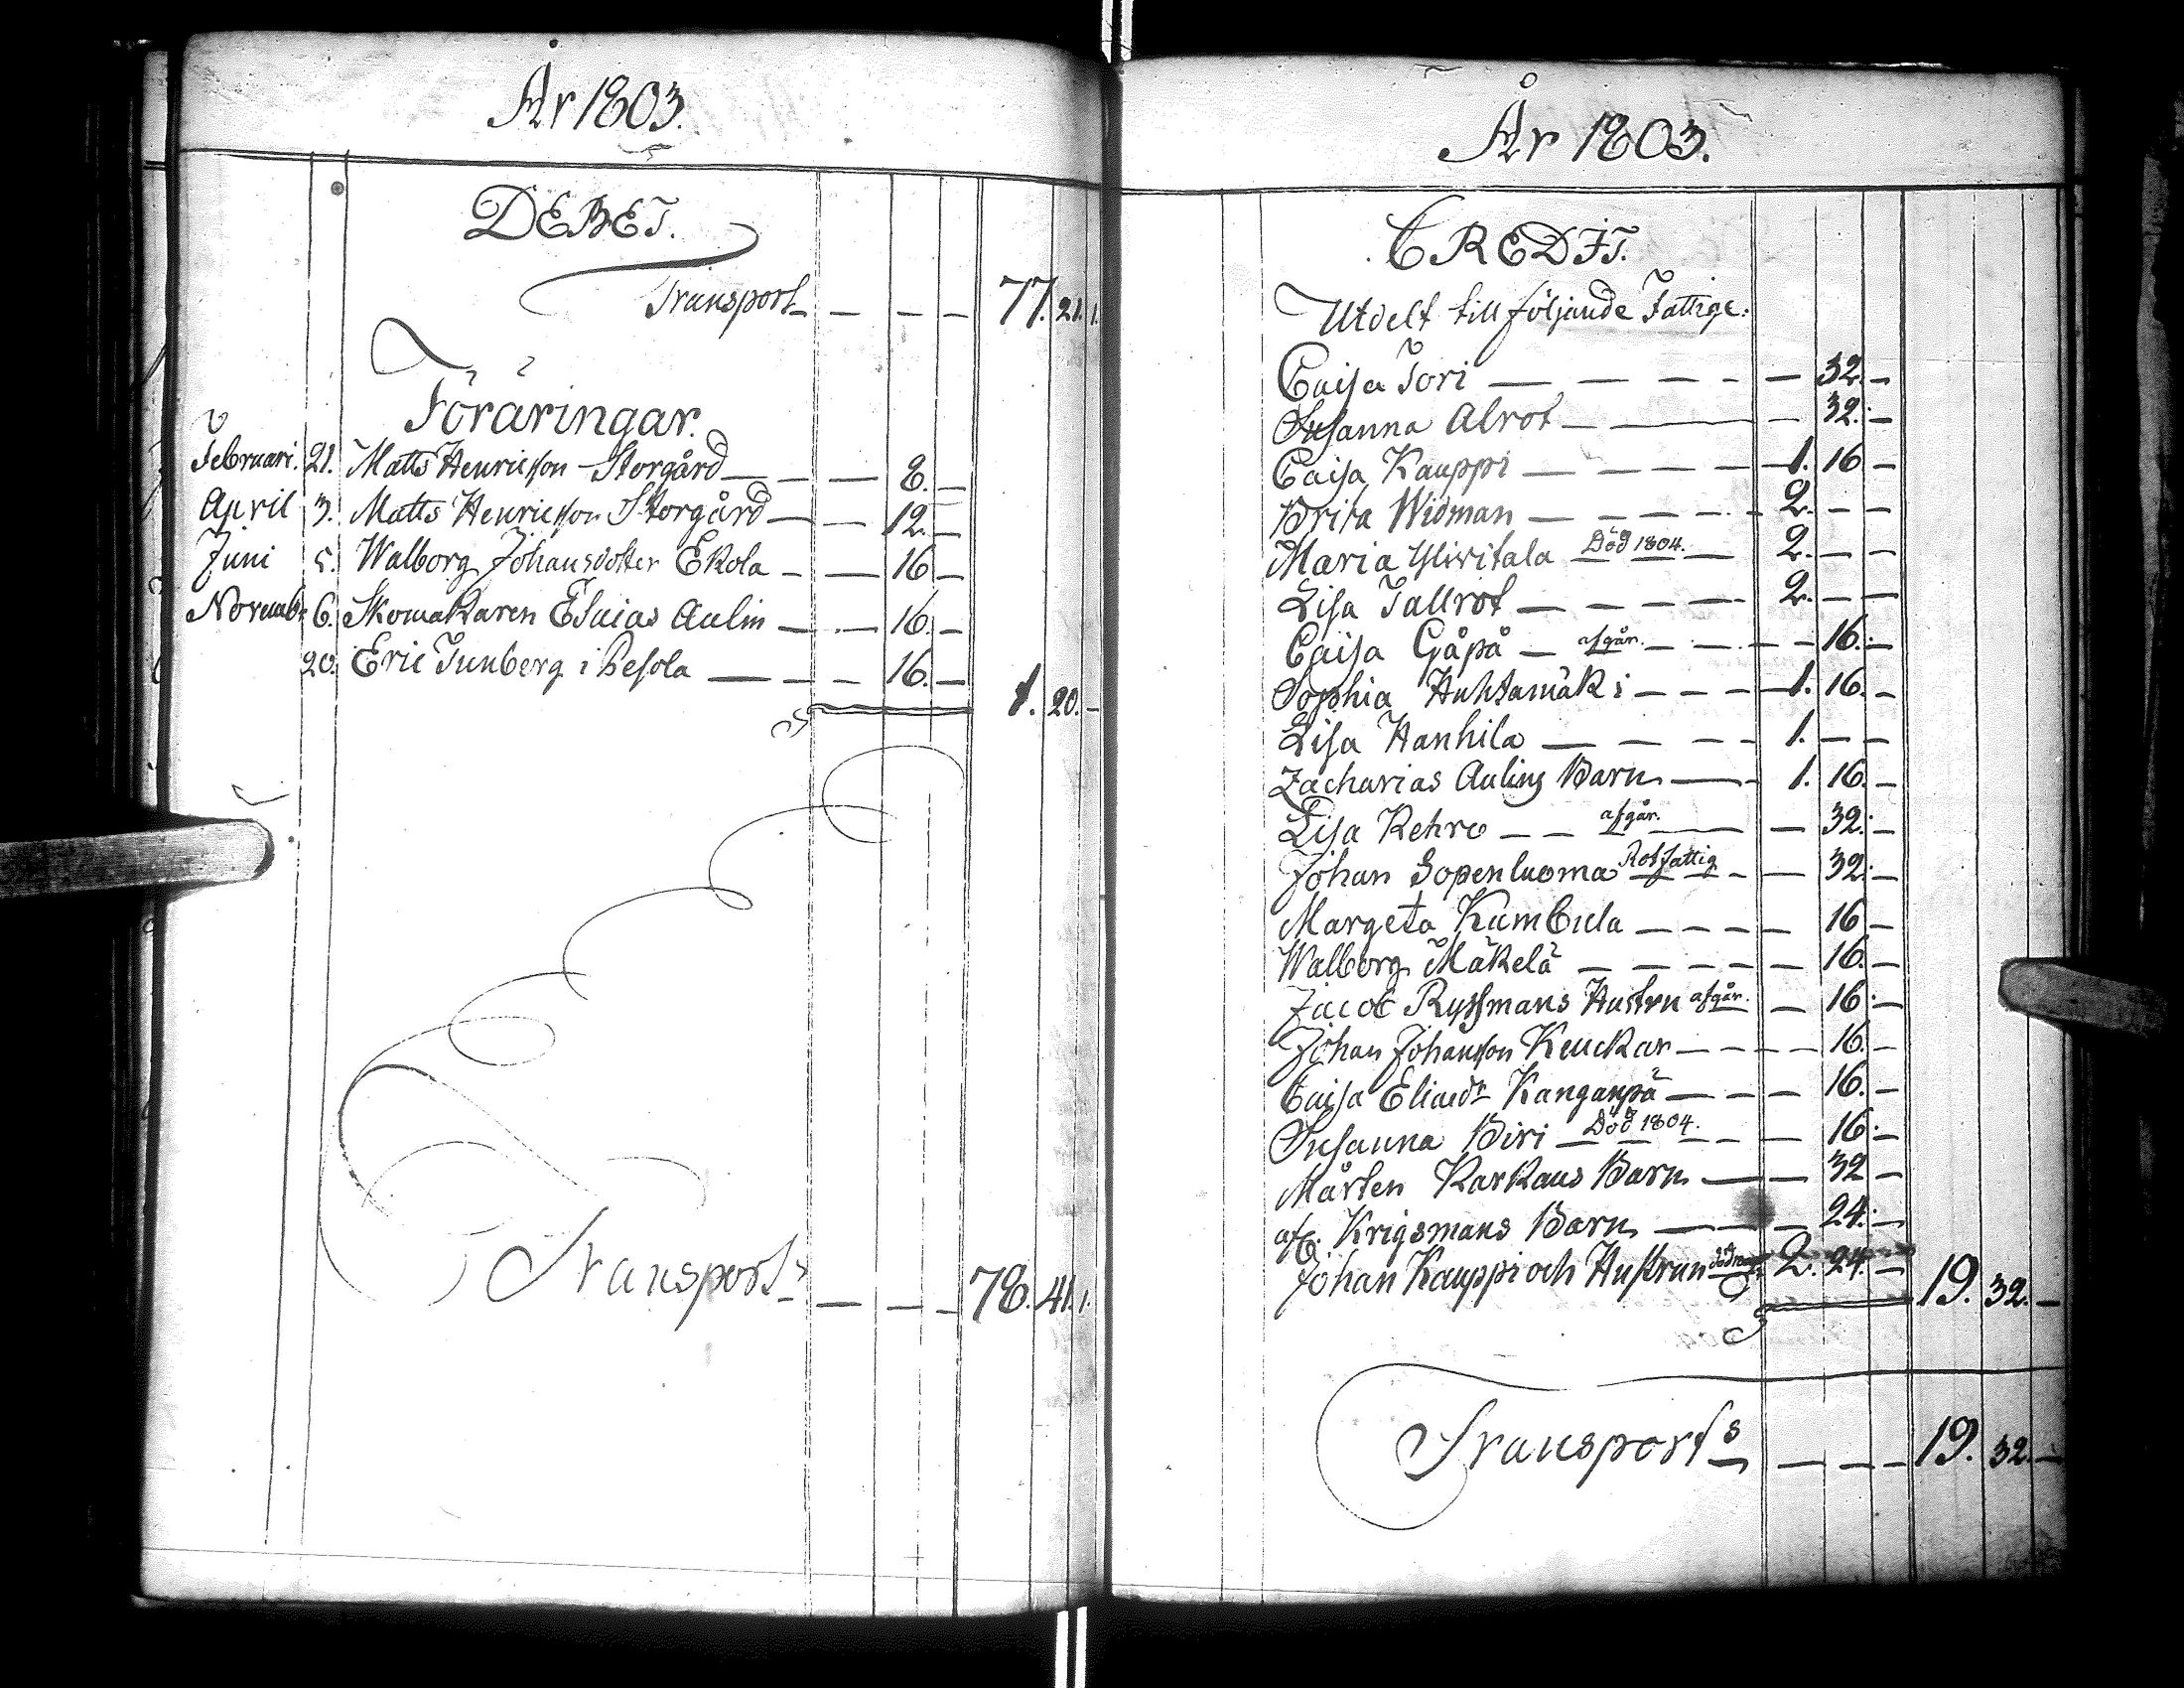 År 1803.
DEBET.
Transport 77. 21. 1.
Föräringar.
Februari. 21. Matts Henricsson Storgård — 8. —
April 3. Matts Henricsson Storgård — 12. —
Juni 5. Walborg Johansdotter Ekola — 16 —
Novemb. 6. Skomakaren Esaias Aulin — 16. —
20. Eric Junberg i Pesola — 16. —
1. 20. —
Transport 78. 41. 1.
År 1803.
CREDIT.
Utdelt till följande Fattige:
Caisa Tori — 32. —
Susanna Alrot — 32. —
Caisa Kauppi — 1. 16 —
Brita Widman — 2. — —
Maria Yliritala Död 1804. — 2. — —
Lisa Tallrot — 2. — —
Caisa Gåpå — afgår. — 16. —
Sophia Huhtamäki — 1. 16. —
Lisa Hanhila — 1. — —
Zacharias Aulins Barn — 1. 16. —
Lisa Rehro — afgår. — 32. —
Johan Sopenluoma Rotfattig — 32. —
Margeta Kambula — 16 —
Walborg Mäkelä — 16. —
Jacob Ryssmans Hustru afgår. — 16. —
Johan Johansson Keuckar — 16. —
Caisa Eliaedr Kanganpä — 16. —
Susanna Biri — Död 1804. — 16. —
Mårten Karkaus Barn — 32 —
Krigsmans Barn — 24. —
Johan Kauppi och Hustrun 2. 24. — 19. 32. —
Transports — 19. 32. —